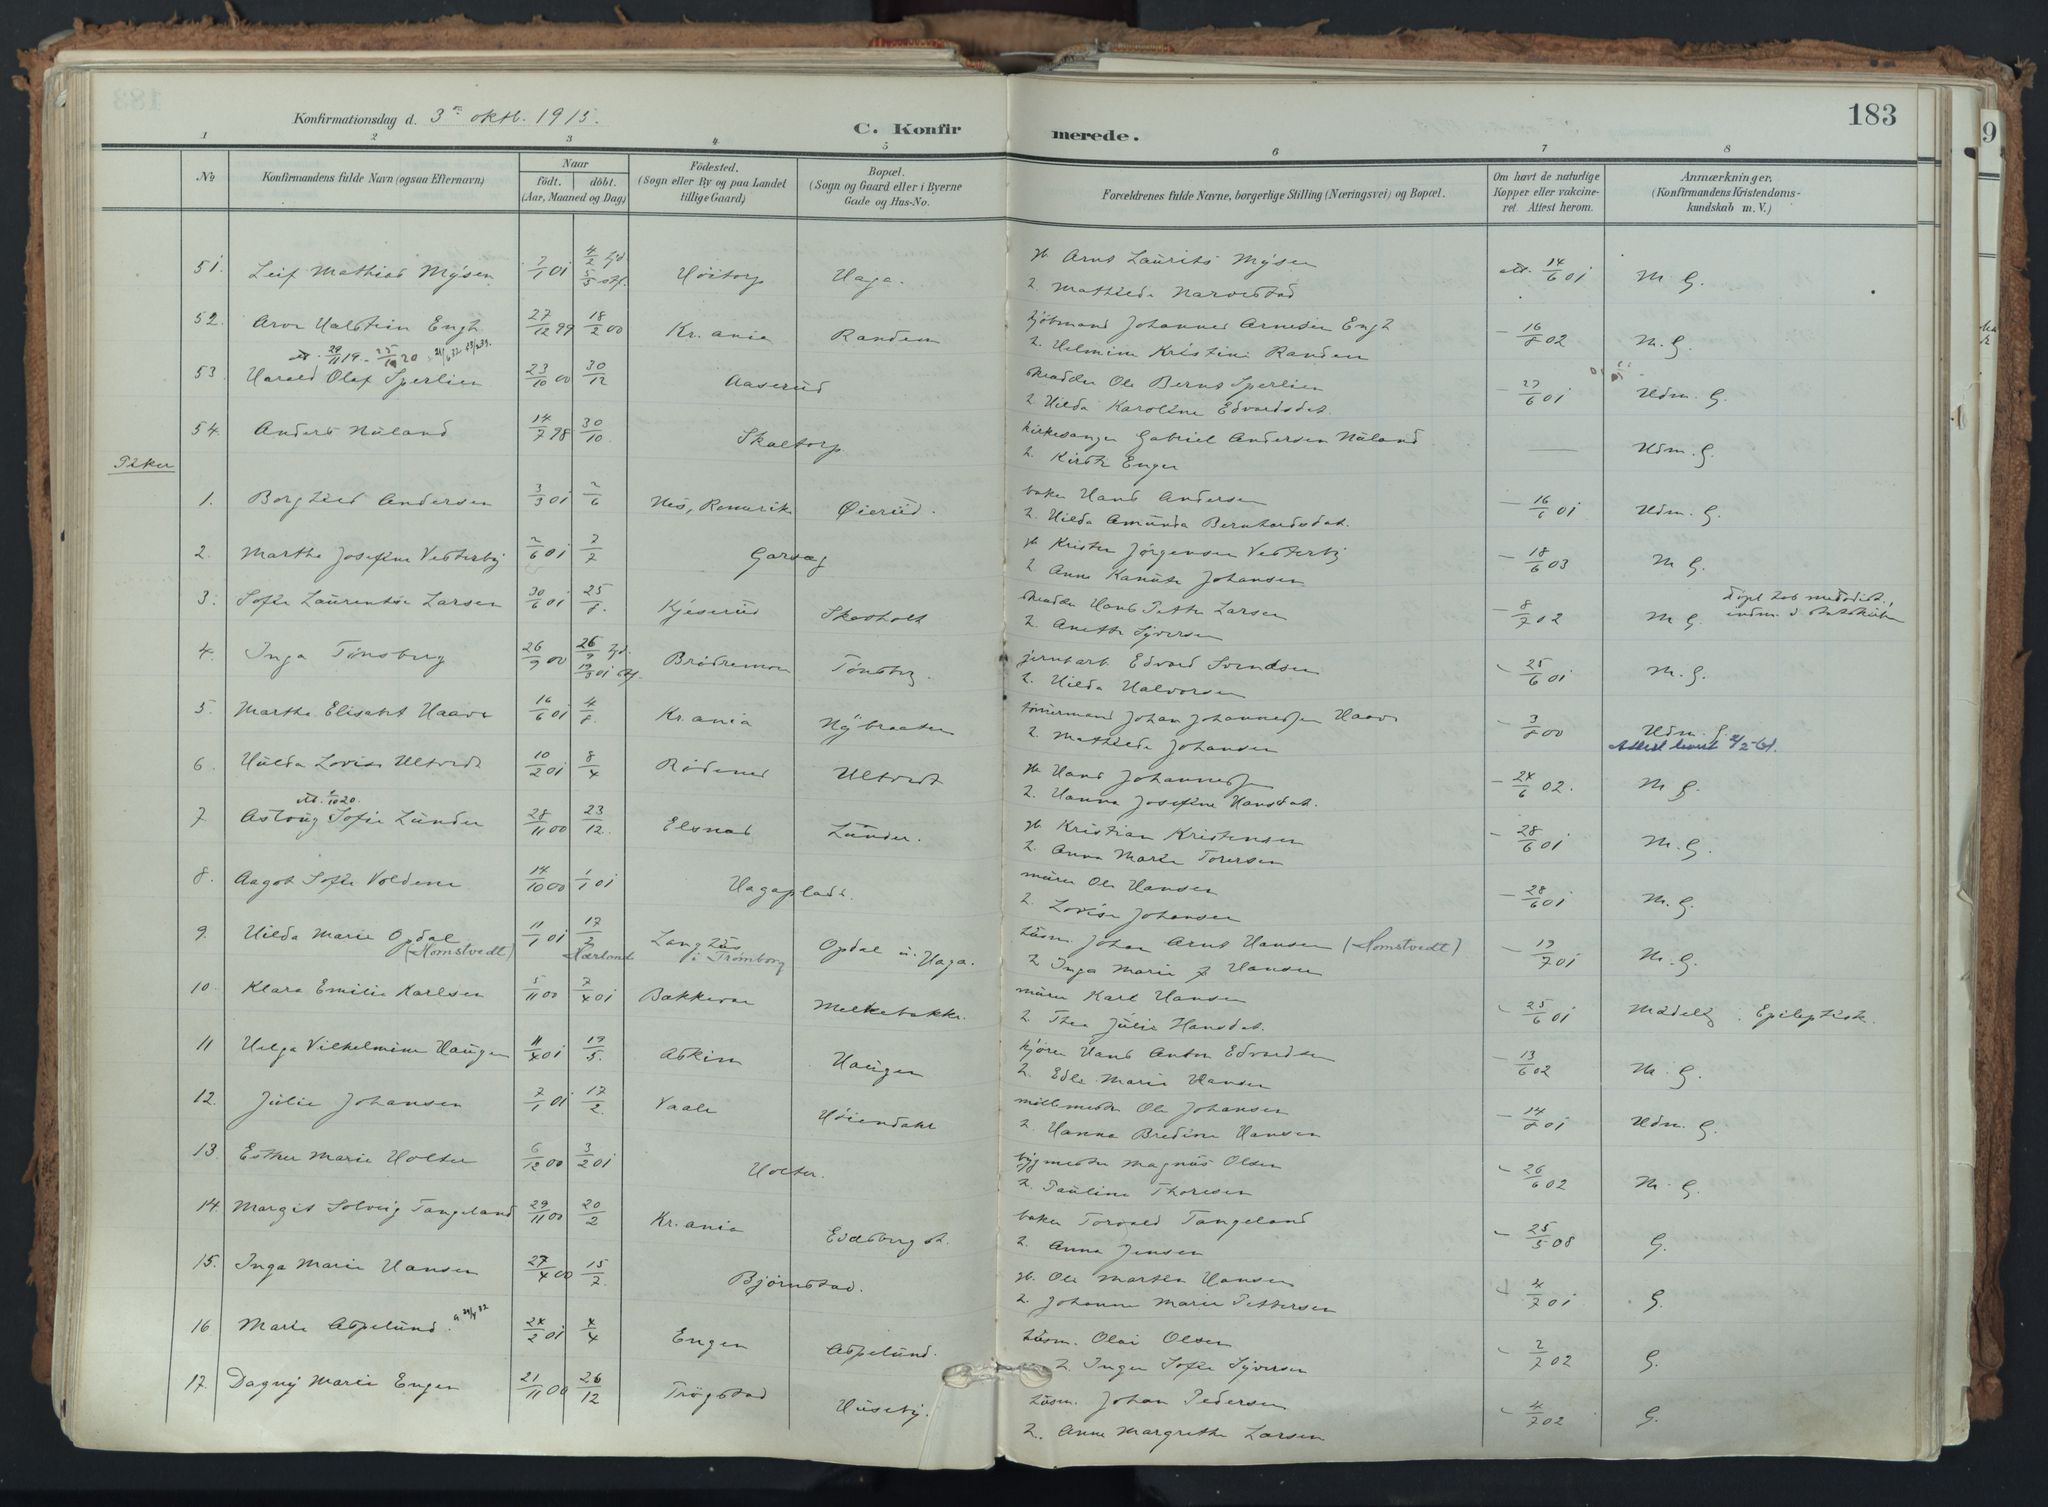 183
Konfirmationsdag d. 3 oktb. 1915.
C. Konfirmerede.
1 2 3 4 5 6 7 8
No
Konfirmandens fulde Navn (ogsaa Efternavn)
Naar
født. døbt.
(Aar, Maaned og Dag)
Födested.
(Sogn eller By og paa Landet
tillige Gaard)
Bopæl.
(Sogn og Gaard eller i Byerne
Gade og Hus-No.
Forældrenes fulde Navne, borgerlige Stilling (Næringsvei) og Bopæl.
Om havt de naturlige
Kopper eller vakcine-
ret Attest herom.
Anmærkninger.
(Konfirmandens Kristendoms-
kundskab m. V.)
51. Leif Mathias Mysen 7/1 01 4/2 5/5 Høitorp Haga. Arnt Laurits Mysen
14/6 01 M G.
52. Arve Halstein Engh 27/12 99 18/2 00 Kr.ania Randem Kjøbmand Johannes Arnesen Engh
2. Helmine Kristine Randem - 16/8 02 M. G.
53 Harald Olaf Sperlien 23/10 00 30/12 Aaserud Skrædder Ole Bernt Sperlien
2. Hilda Karoline Edvardsdat. - 27/6 01 Udm. G.
54. Anders Nuland 14/7 98 30/10 Skaltorp Kirkesanger Gabriel Andersen Nuland
2. Kirsti Enger Udm. G.
Piker
1. Borghild Andersen 3/3 01 2/6 Nes, Romerik Øierud. baker Hans Andersen
2. Hilda Amunda Bernhardsdat. - 16/6 01 Udm. G.
2. Marthe Josefine Vesterby 2/6 01 7/7 Garseg Kristen Jørgensen Vesterby
2 Anne Kanute Johansen - 18/6 03 M G.
3. Sofie Laurentse Larsen 30/6 01 25/8 Kjeserud Skosholt Skrædder Hans Petter Larsen
2. Anette Syversen - 8/7 02 M G.
4. Inga Tønsberg 26/9 00 Brødremoen Tønsberg. jernbarb. Edvard Svendsen
2. Hilda Halvorsen 25/6 01 M. G.
5. Marthe Elisabet Haave 16/6 01 4/8 Kr.ania Nybraaten tømmermand Johan Johannessen Haave
2. Mathilde Johansen - 3/8 00 Udm. G.
6. Hulda Lovise Ultvedt 10/2 01 8/4 Rødenes Ultvedt Hans Johannessen
2. Hanna Josefine Hansdat. - 24/6 02. M G.
7. Astrug Sofie Lunder 28/11 00 23/12. Lunder. Kristian Kristensen
2. Anna Marie Torersen - 28/6 01 M. G.
8. Aagot Sofie Voldene 14/10 00 1/1 01 Hagaplads. murer Ole Hansen
2. Lovise Johansen - 28/6 01 M. G.
9. Hilda Marie Opdal (Homstvedt) 11/1 01 17/2 Hærland Langhus i Trømborg Opdal u. Haga. Husm. Johan Arnt Hansen (Homstvedt)
2 Inga Marie Hansen - 19/7 01 M. G.
10. Klara Emilie Karlsen 5/11 00 7/4 01 Bakkevar Melkebakke. murer Karl Hansen
2. Thea Julie Hansdat. 25/6 01 Mådelig. Epileptisk.
11 Helga Vilhelmine Haugen 11/4 01 19/5. Askim Haugen kjører Hans Anton Edvardsen
2. Edle Marie Hansen - 13/6 02 M. G.
12. Julie Johansen 7/1 01 17/2. Vaale Høiendahl møllemester Ole Johansen
2. Hanna Bredine Hansen - 14/8 01 Udm. G.
13. Esther Marie Holter 6/12 00 3/2 01 Holter. bygmester Magnus Olsen
2. Pauline Thoresen 26/6 02 M. G.
14. Margit Solveig Tangeland 29/11 00 20/2 Kr.ania Eidsberg st. baker Torvald Tangeland
2. Anna Jensen - 25/5 08 G.
15. Inga Marie Hansen 27/4 00 15/7. Bjørnstad. Ole Martin Hansen
2. Johanne Marie Pettersen 4/7 01 G.
16 Marie Aspelund. 24/2 01 4/4 Engen Aspelund. Husm. Olai Olsen
2. Inger Sofie Syversen 2/7 02 G.
17. Dagny Marie Engen 21/11 00 26/12 Trøgstad Huseby. Husm. Johan Pedersen
2. Anne Margrethe Larsen 4/7 02 G.